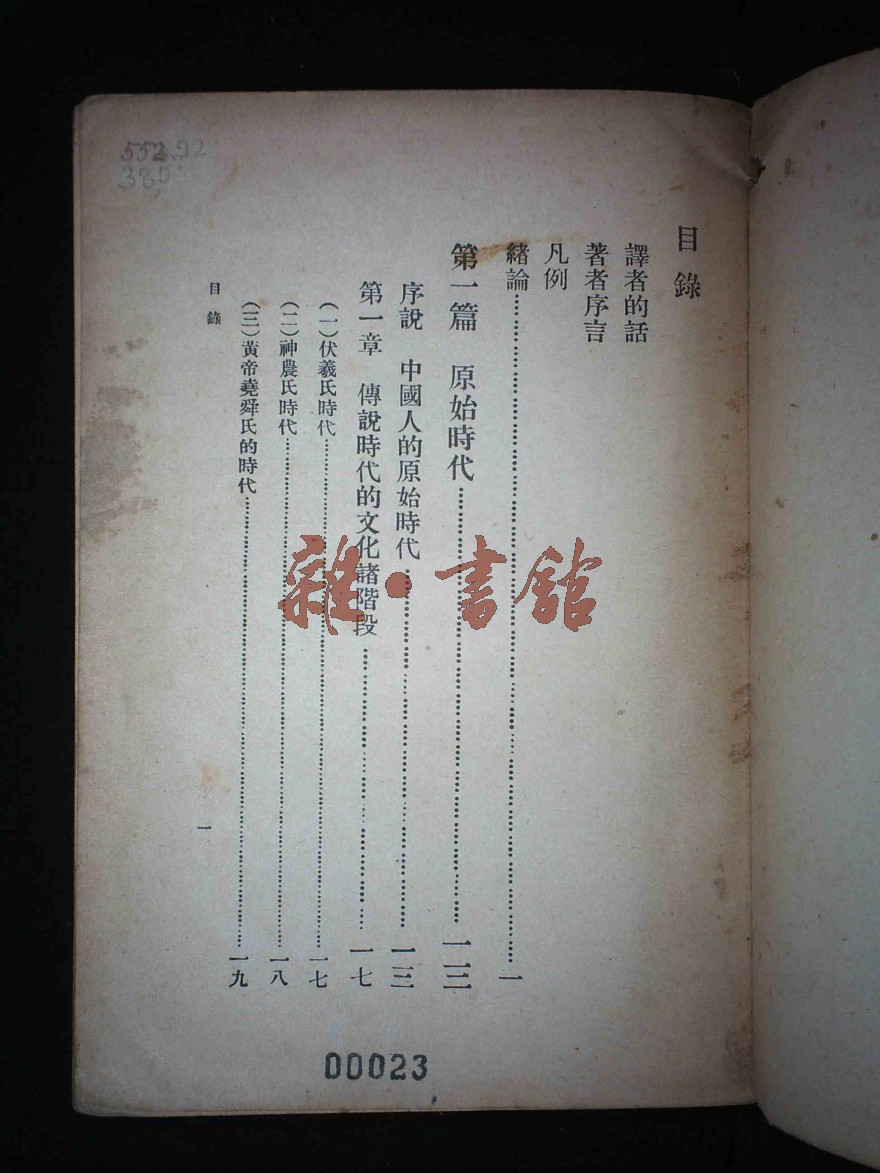 552.92
380
目錄
譯者的話
著者序言
凡例
緒論……一
第一篇 原始時代……一三
序說 中國人的原始時代……一三
第一章 傳說時代的文化諸階段……一七
(一)伏羲氏時代……一七
(二)神農氏時代……一八
(三)黃帝堯舜氏的時代……一九
目錄
一
雜·書館
00023